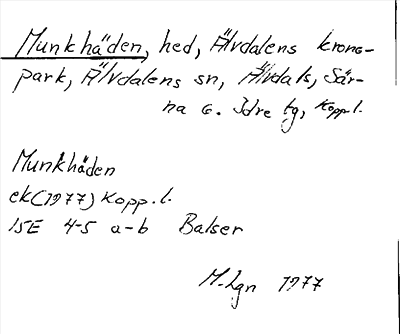 Munkhäden, hed, Älvdalens krono-
park, Älvdalens sn, Älvdals, Sär-
na o. Idre tg, Kopp.l.
Munkhäden
ek(1977) Kopp.l.
15E 4-5 a-b Balser
M-Lgn 1977